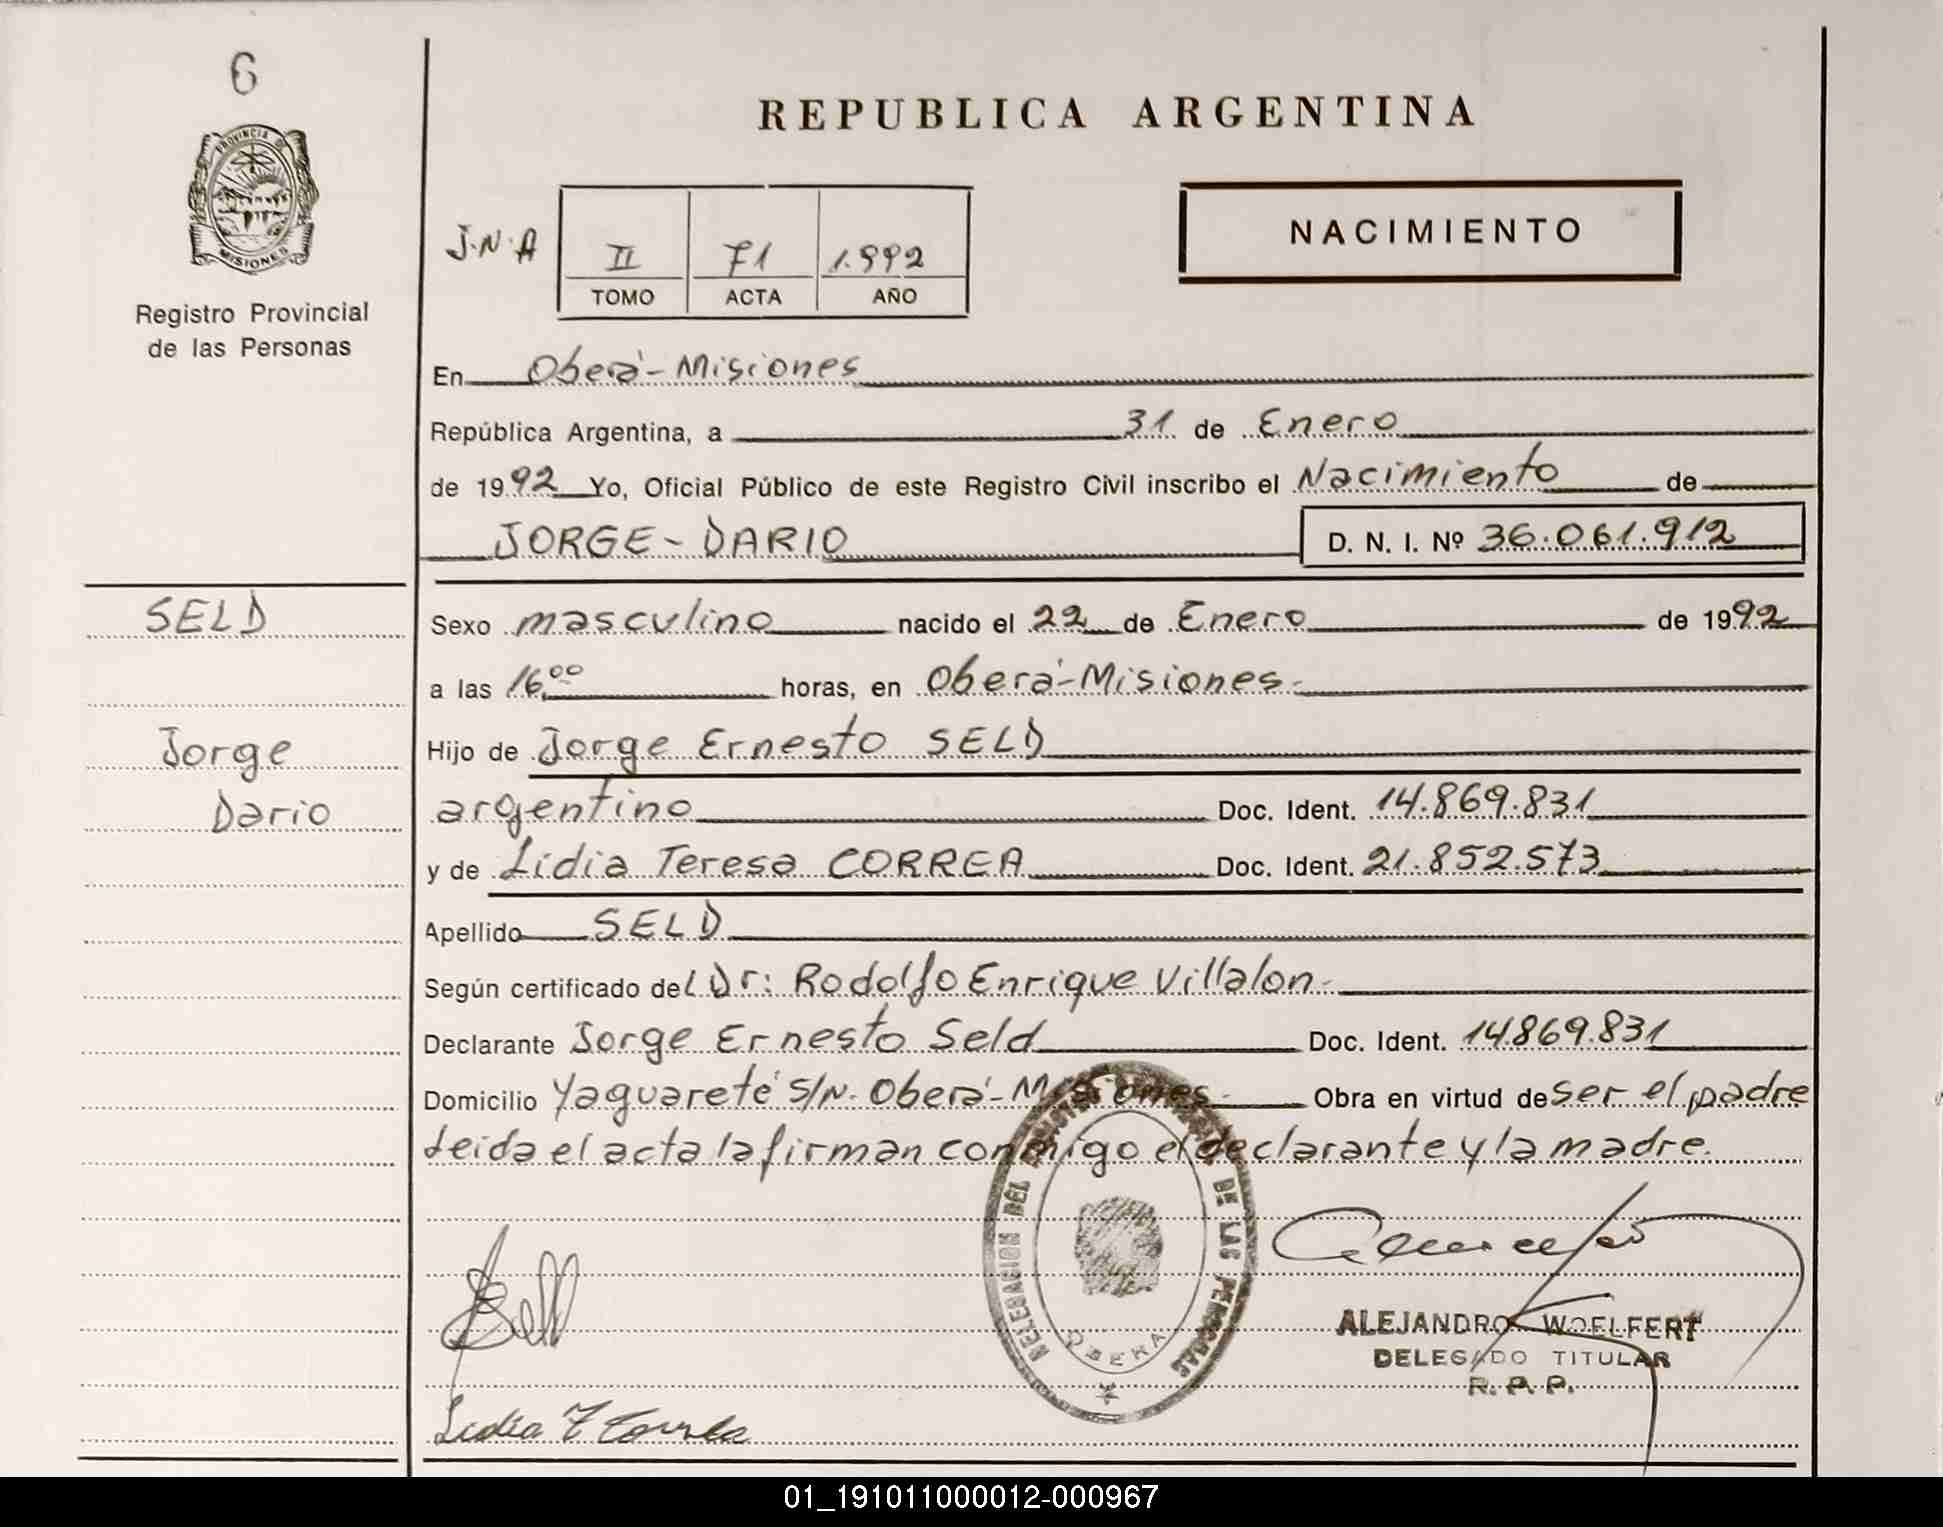 6
PROVINCIA
MISIONES
Registro Provincial
de las Personas
REPUBLICA ARGENTINA
NACIMIENTO
J.N.A
II 71 1.992
TOMO ACTA AÑO
En Oberá-Misiones
República Argentina, a 31 de Enero
de 1992 Yo, Oficial Público de este Registro Civil inscribo el Nacimiento de
JORGE-DARIO D. N. I. Nº 36.061.912
SELD
Jorge
Dario
Sexo masculino nacido el 22 de Enero de 1992
a las 16,00 horas, en Oberá-Misiones.
Hijo de Jorge Ernesto SELD
argentino Doc. Ident. 14.869.831
y de Lidia Teresa CORREA Doc. Ident. 21.852.573
Apellido SELD
Según certificado del Dr: Rodolfo Enrique Villalon.
Declarante Jorge Ernesto Seld Doc. Ident. 14.869.831
Domicilio Yaguareté S/N. Oberá-Misiones. Obra en virtud de ser el padre
Leida el acta la firman conmigo el declarante y la madre.
DELEGACION DEL REGISTRO DE LAS PERSONAS
OBERA
Seld
ALEJANDRO WOELFERT
DELEGADO TITULAR
R. P. P.
Lidia T Correa
01_191011000012-000967